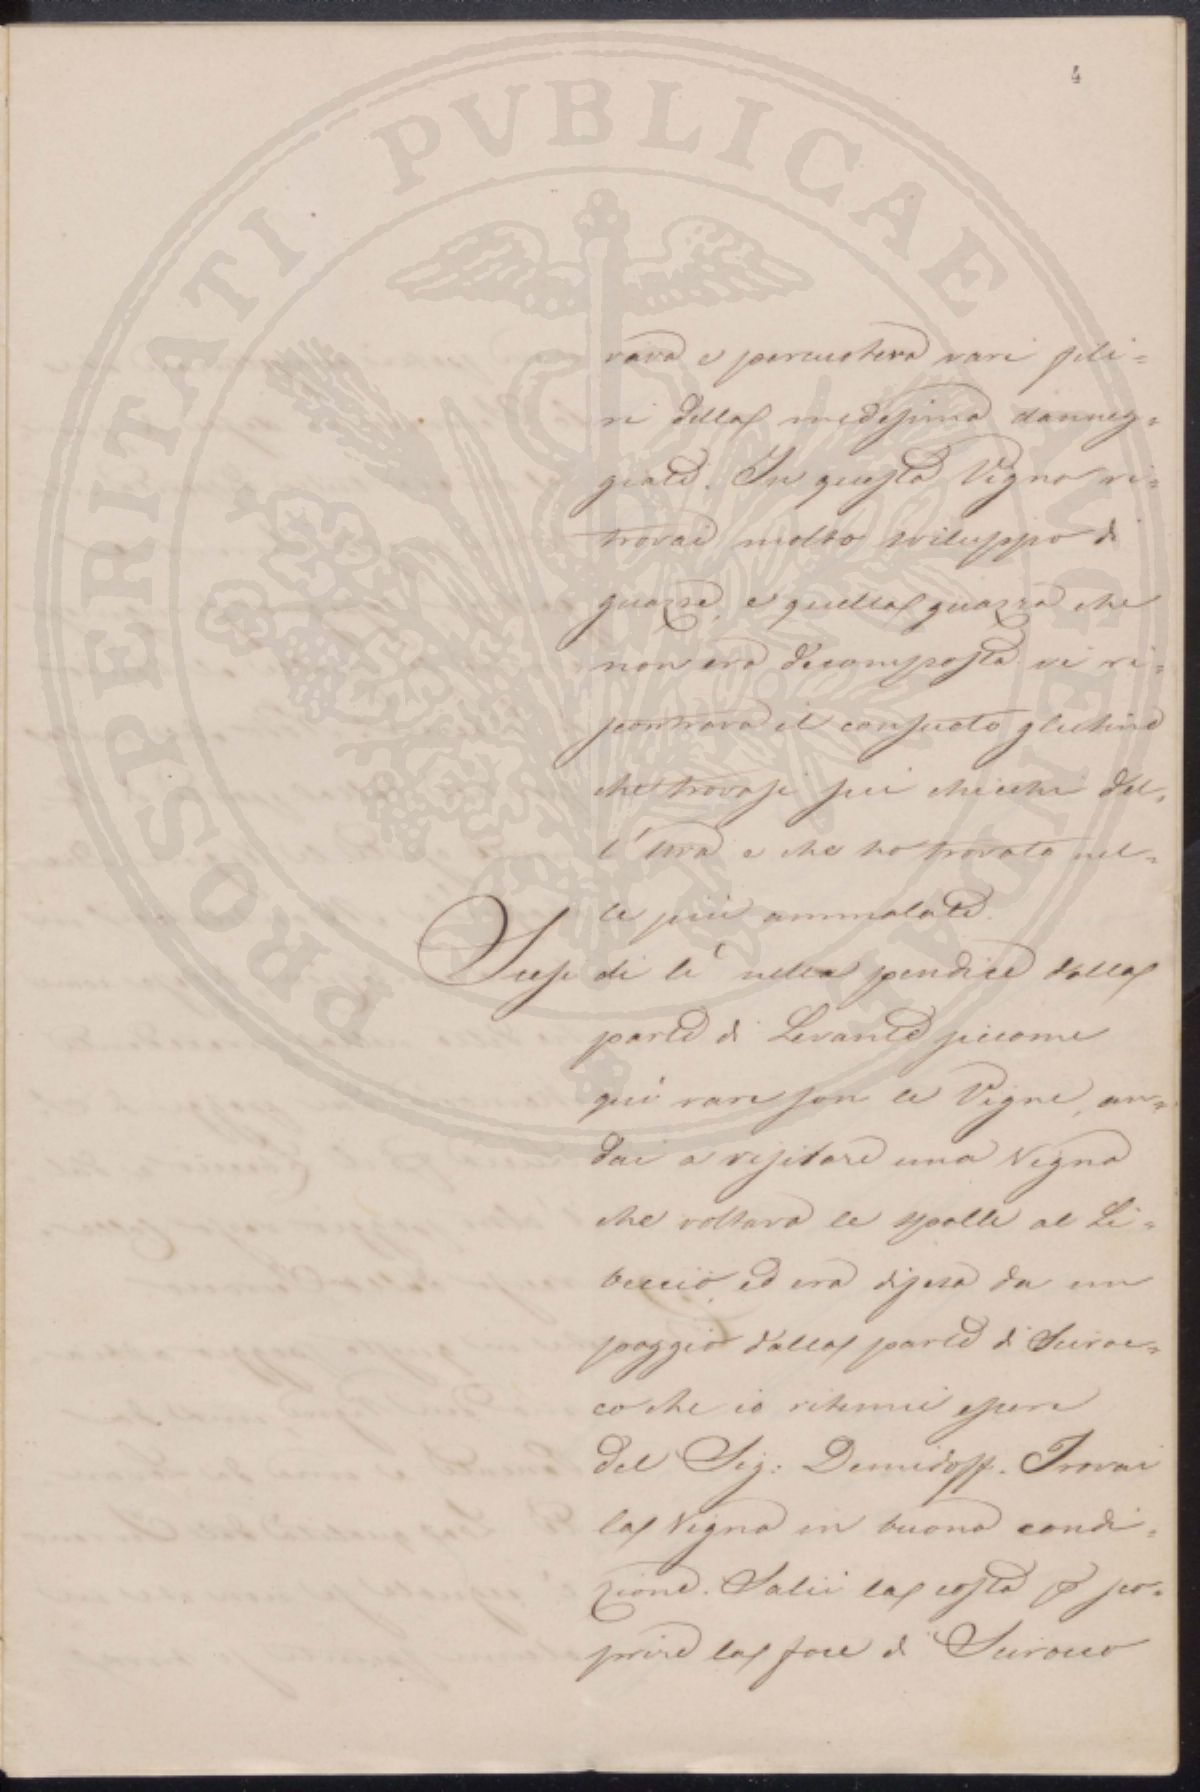 4
PROSPERITATI PVBLICAE AVGENDAE
rava e percuoteva vari fila=
ri della medesima danneg=
giate. In questa Vigna ri=
trovai molto sviluppo di
guazze, e quella guazza che
non era decomposta vi ri=
scontrava il consueto glutine
che trovasi sui chicchi del=
l'uva e che ho trovato nel=
le più ammalate.
Scesi di lì nella pendice dalla
parte di Levante siccome
qui rare son le Vigne, an=
dai a visitare una Vigna
che voltava le spalle al Li=
beccio, ed era difesa da un
poggio dalla parte di Sciroc=
co che io ritenni essere
del Sig: Demidoff. Trovai
la Vigna in buona condi=
zione. Salii la costa p sco=
prire la foce di Scirocco